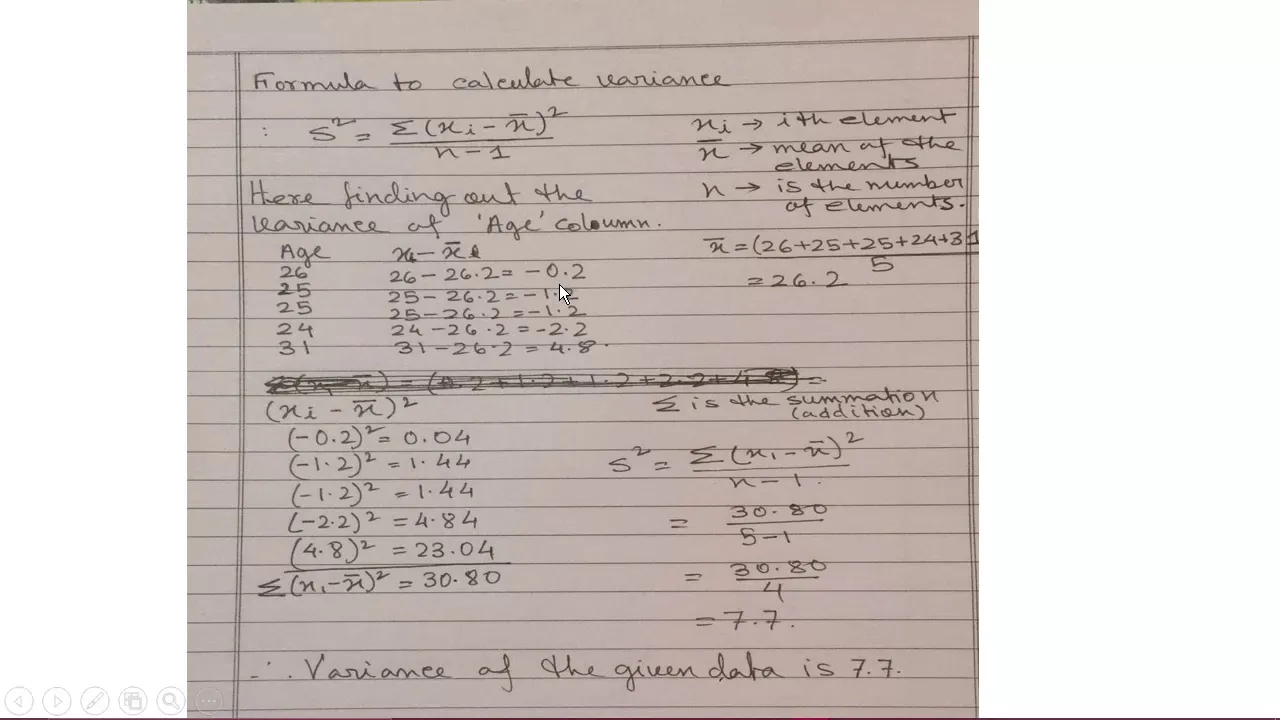 Formula to calculate variance
: S² = Σ(xi - x̄)² / n-1
xi → ith element
x̄ → mean of the
elements
n → is the number
of elements.
Here finding out the
variance of 'Age' coloumn.
x̄ = (26+25+25+24+31 / 5
= 26.2
Age xi - x̄
26 26 - 26.2 = -0.2
25 25 - 26.2 = -1.2
25 25 - 26.2 = -1.2
24 24 - 26.2 = -2.2
31 31 - 26.2 = 4.8.
Σ is the summation
(addition)
(xi - x̄)²
(-0.2)² = 0.04
(-1.2)² = 1.44
(-1.2)² = 1.44
(-2.2)² = 4.84
(4.8)² = 23.04
Σ(x₁-x̄)² = 30.80
S² = Σ(x₁-x̄)² / n-1.
= 30.80 / 5-1
= 30.80 / 4
= 7.7.
∴ Variance of the given data is 7.7.